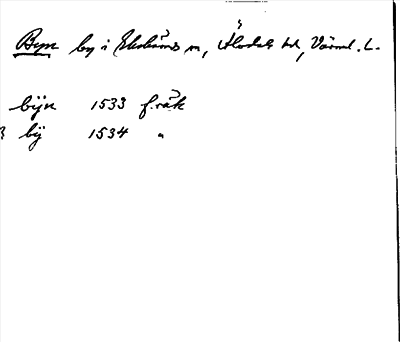 Byn by i Ekshärads sn, Älvdals hd, Värml. L.
bijn 1533 f. räk
bij 1534 "